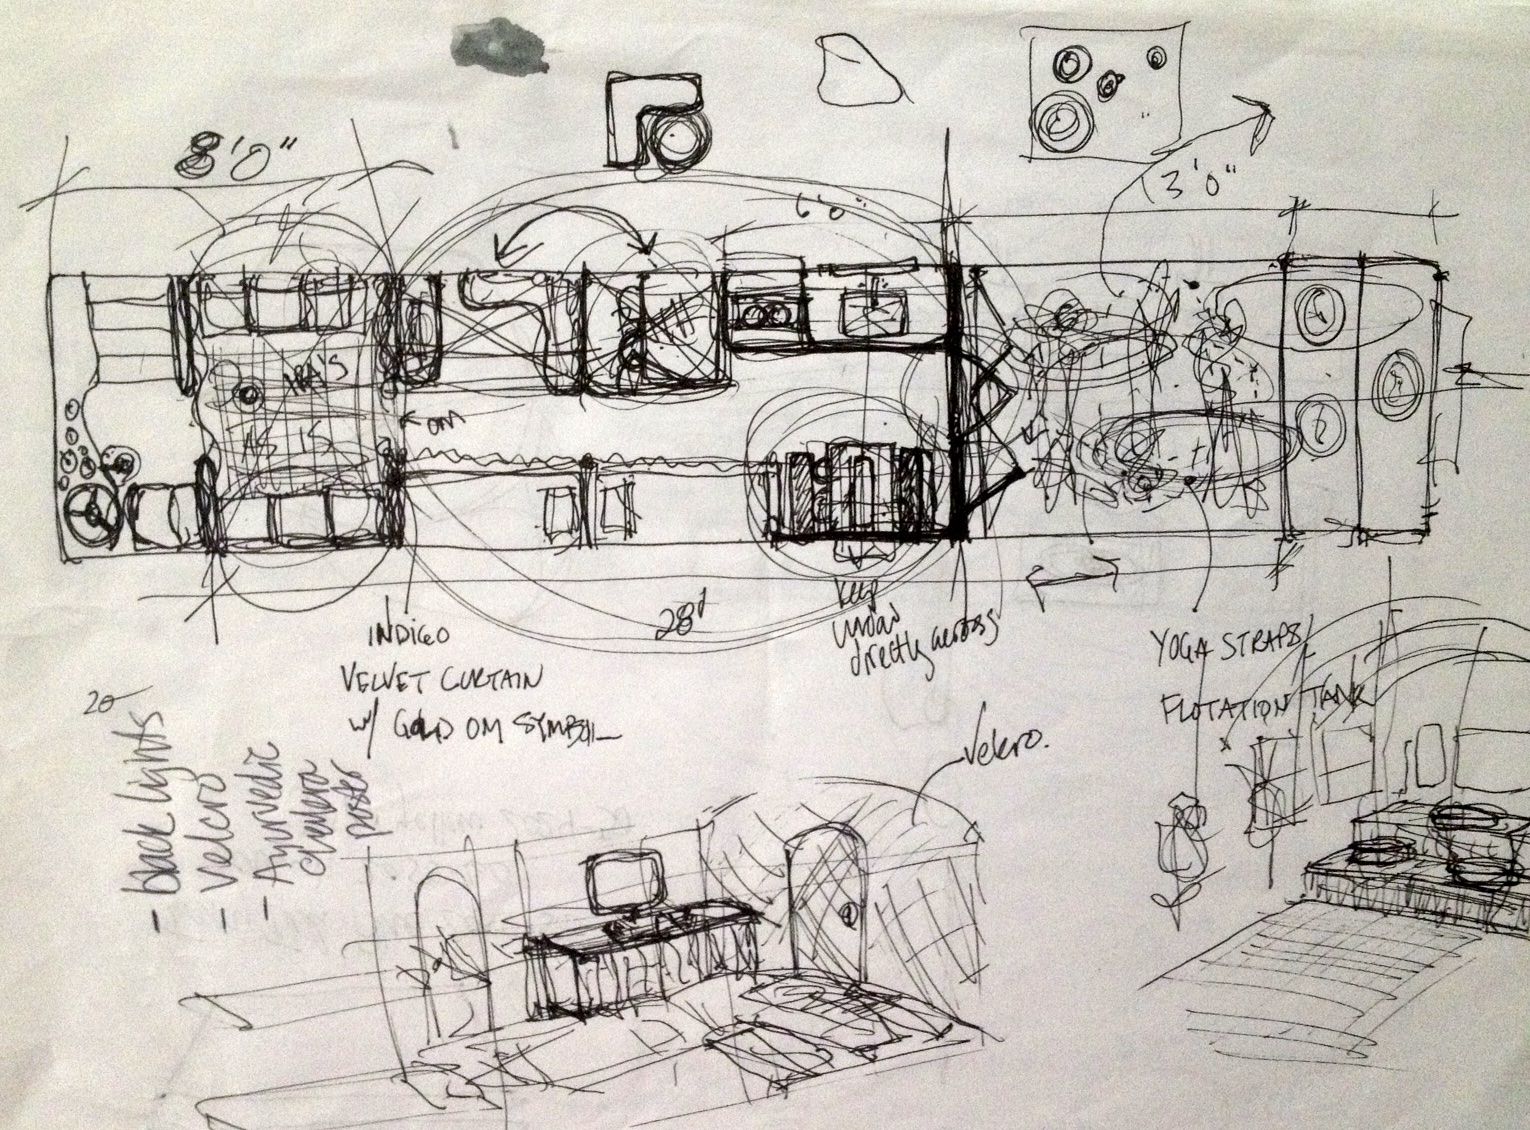 8'0"
6'0"
13'0"
AS IS
OM
28'
INDIGO
VELVET CURTAIN
W/ GOLD OM SYMBOL
keep
directly across
YOGA STRAPS/
FLOTATION TANK
Velcro.
- black lights
- velcro
- Ayurvedic
chakra
poster